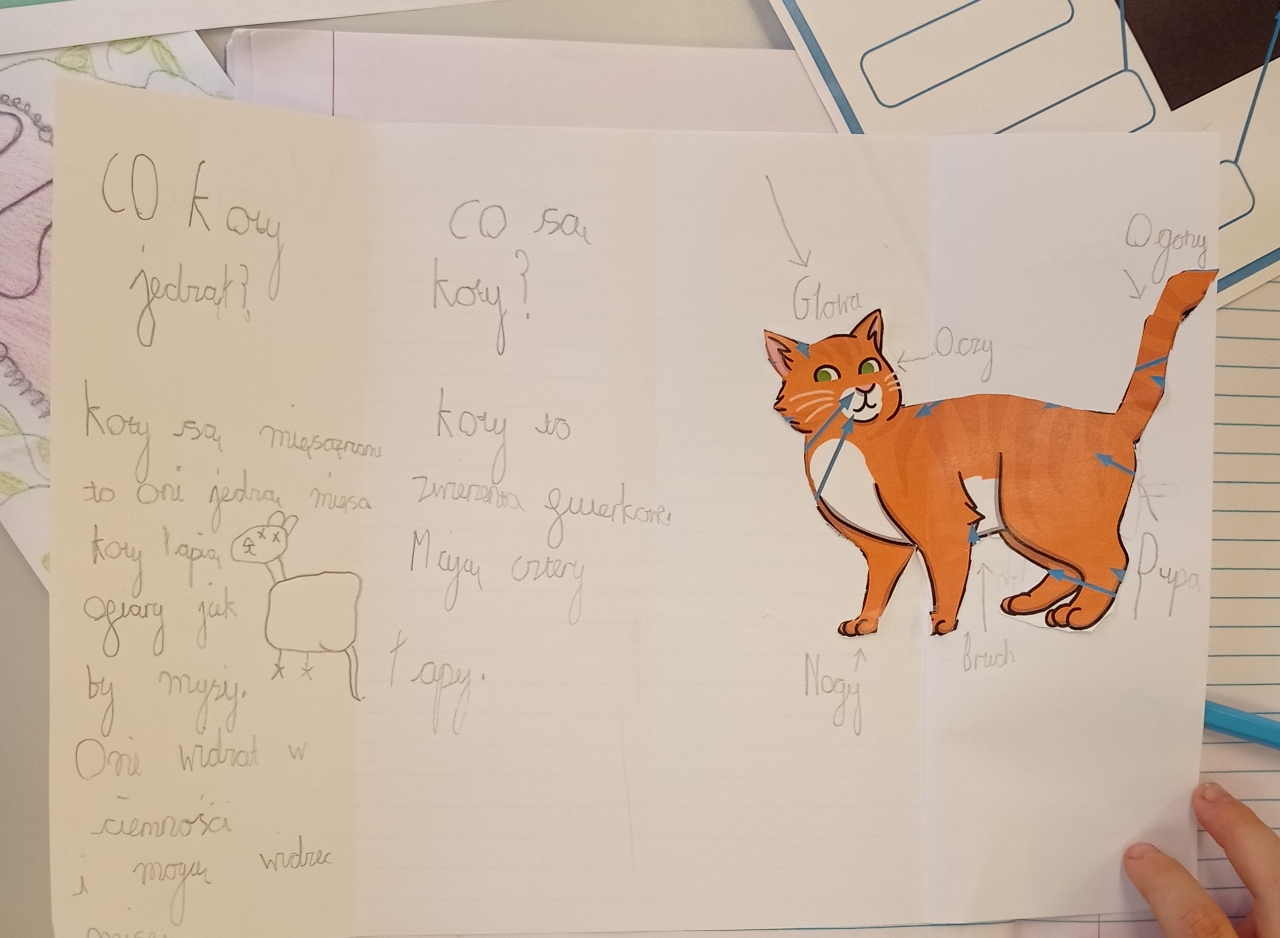 CO koty
jedzął?
koty są mięsożrani
to oni jedzą mięsa
koty łapią
ofiary jak
by myszy.
Oni widzał w
ciemności
i mogą widzec
CO są
koty?
koty to
zwierzenta
Mają cztery
łapy.
Głowa
Oczy
Ogony
Pupa
Bruch
Nogy